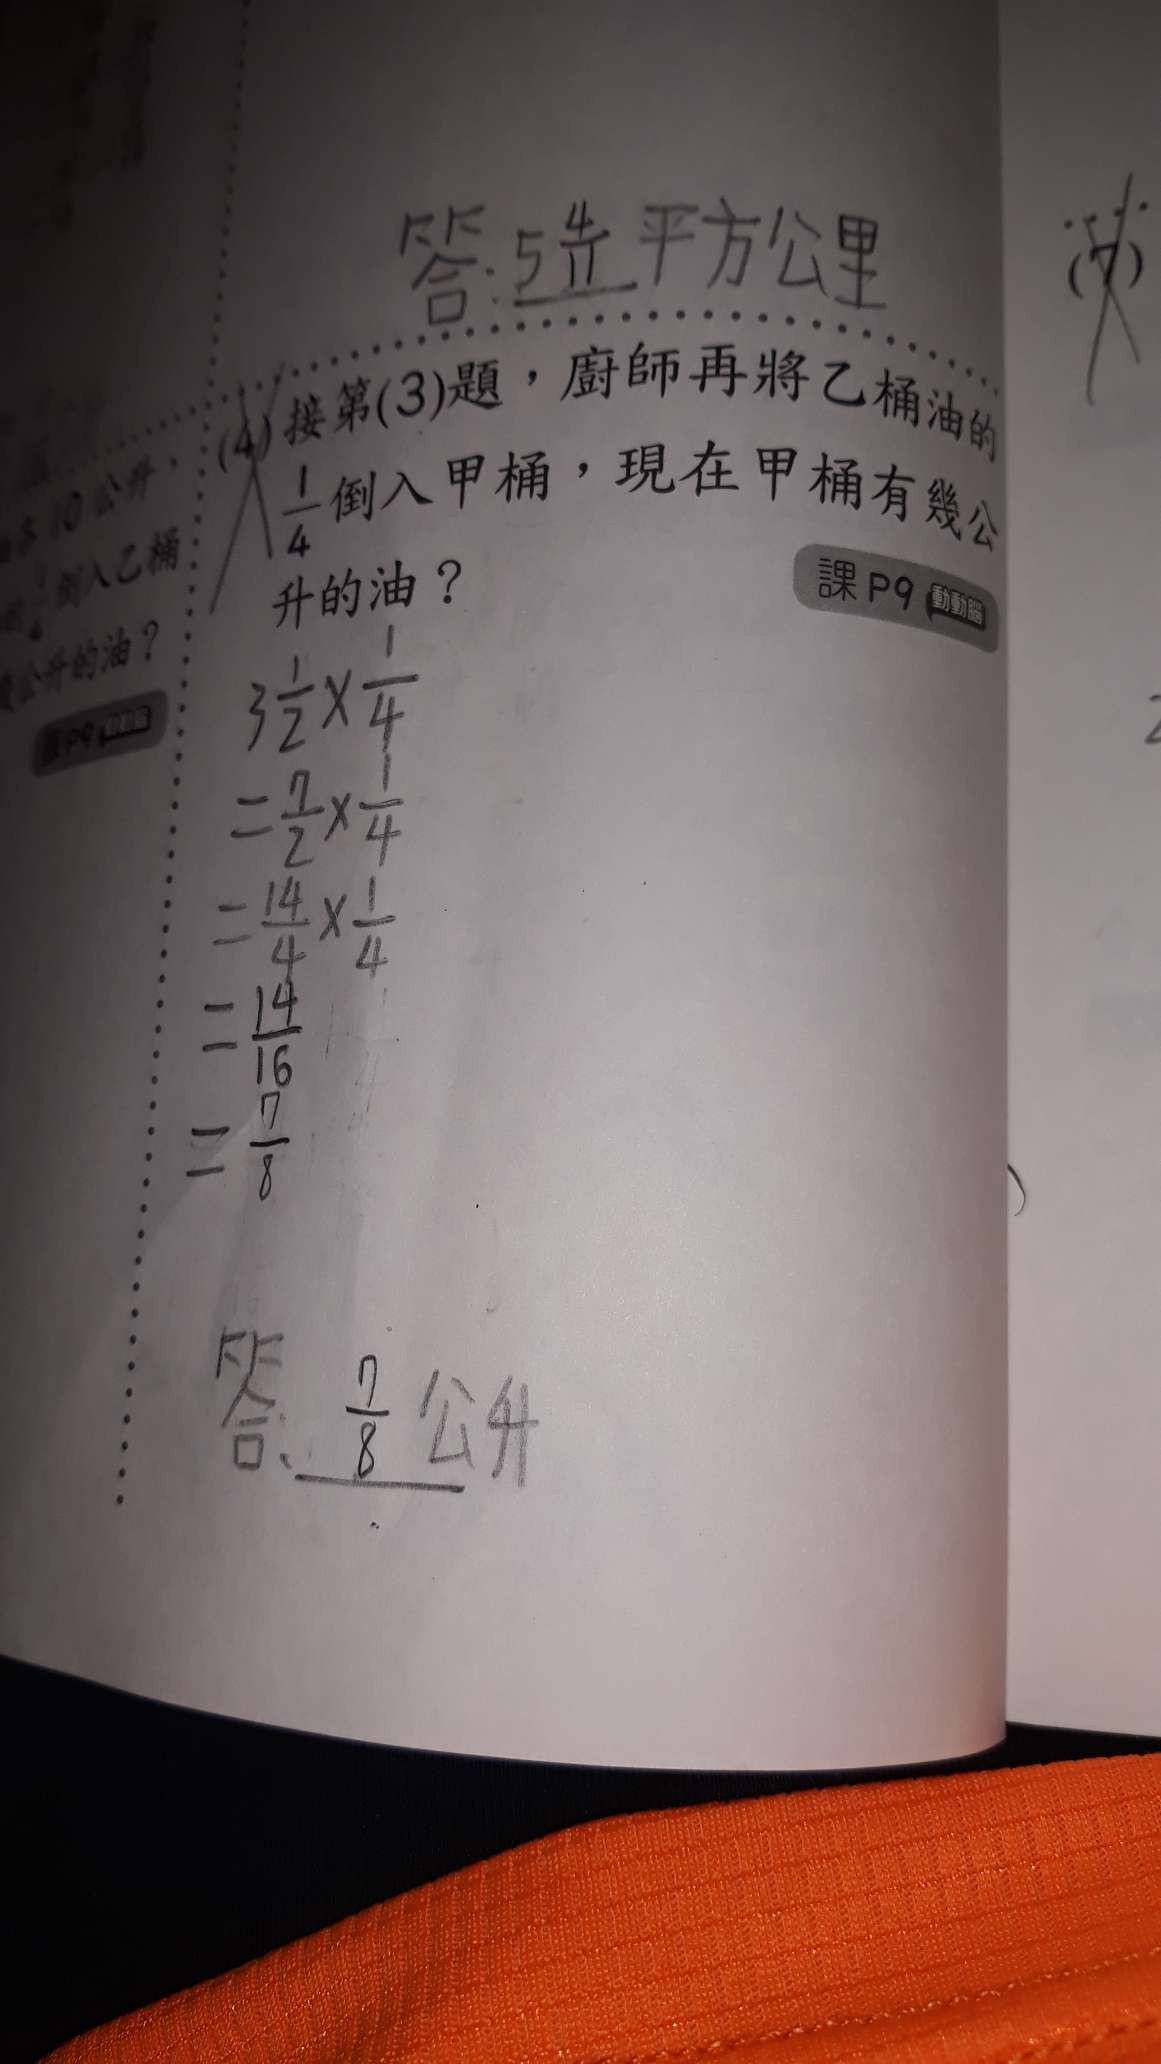 答:5 4/11 平方公里
(4) 接第(3)題，廚師再將乙桶油的
1/4 倒入甲桶，現在甲桶有幾公
升的油？
課P9 動動腦
3 1/2 × 1/4
= 7/2 × 1/4
= 14/4 × 1/4
= 14/16
= 7/8
答: 7/8 公升
10公升，
倒入乙桶
公升的油？
P9
(7)